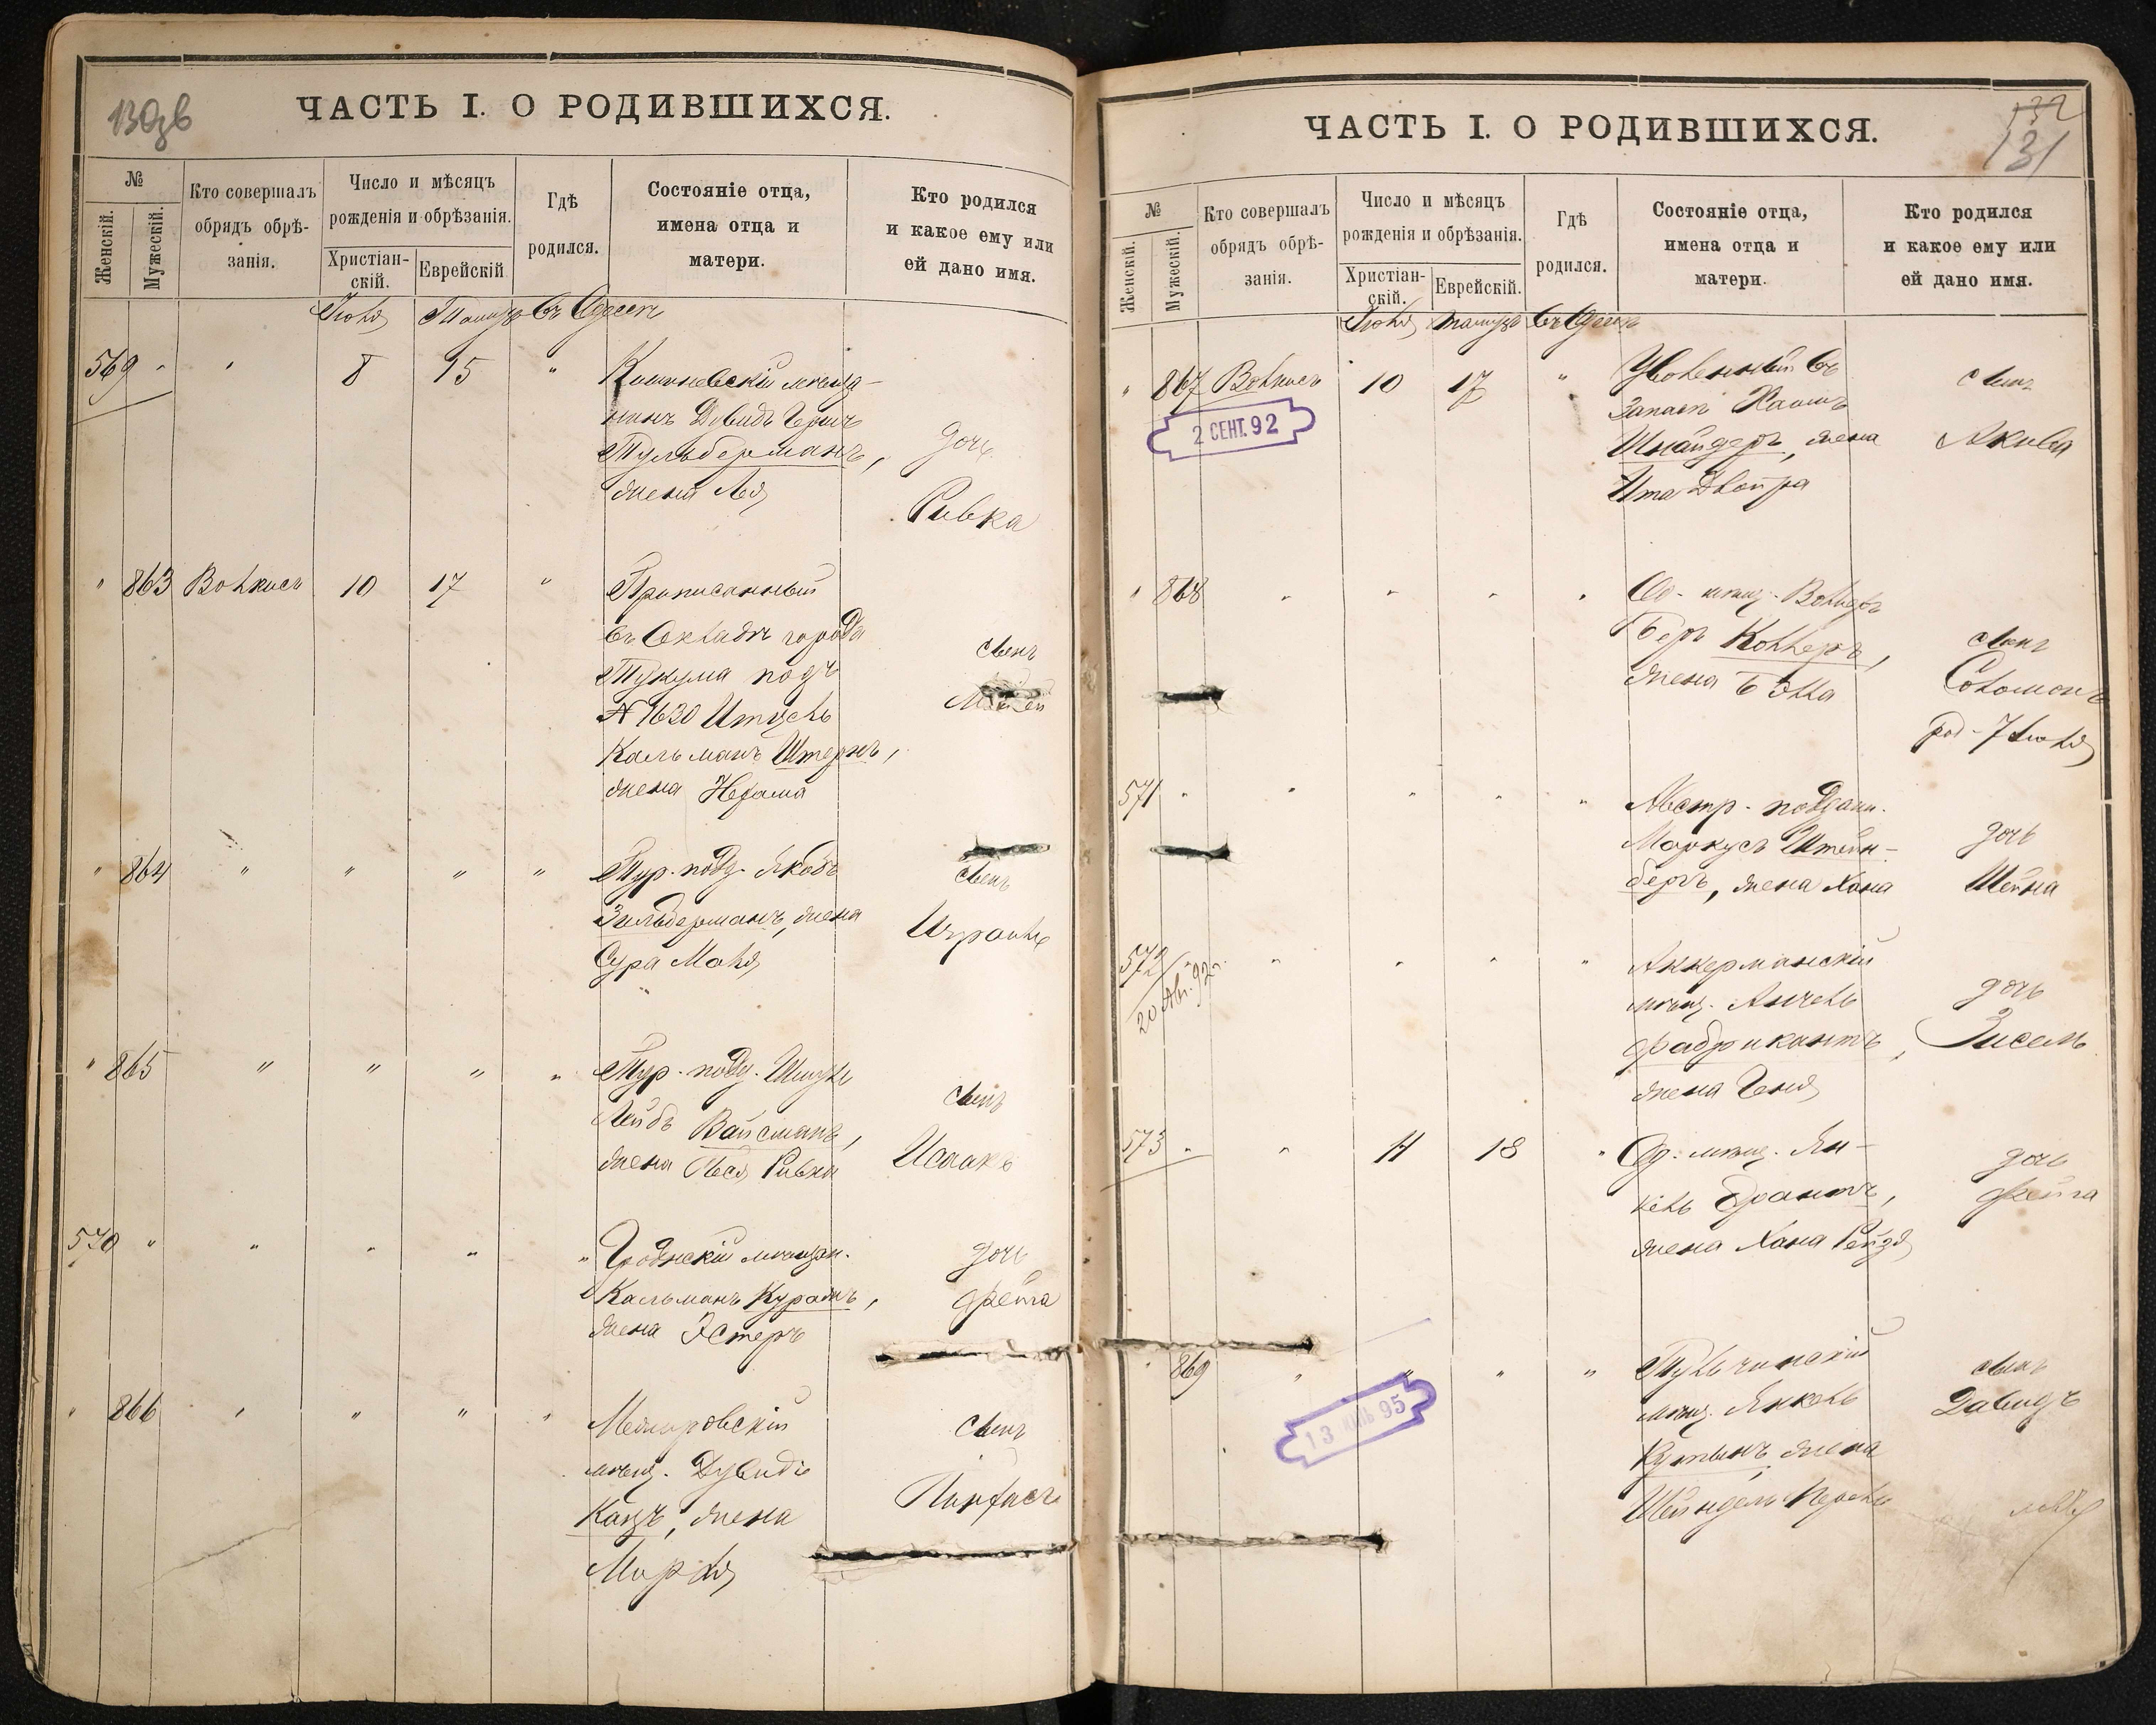 130об
ЧАСТЬ I. О РОДИВШИХСЯ.
№
Женскій.
Мужескій.
Кто совершалъ
обрядъ обрѣ-
занія.
Число и мѣсяцъ
рожденія и обрѣзанія.
Христіан-
скій.
Еврейскій
Гдѣ
родился.
Состояніе отца,
имена отца и
матери.
Кто родился
и какое ему или
ей дано имя.
Іюля Тамузъ Въ Одессѣ
569 " " 8 15 " Кишиневскій мѣща-
нинъ Дувидъ Гершъ
Тульберманъ, дочь
жена Лея
Ривка
" 863 Волкисъ 10 17 " Приписанный
въ Окладъ города
Тукума подъ сынъ
№ 1630 Итцель
Кальманъ Штернъ,
жена Нехама
" 864 " " " " Тур. подд. Якобъ сынъ
Зильберманъ, жена Израиль
Сура Маля
" 865 " " " " Тур. подд.
Лейбъ Вайсманъ, сынъ
жена Песя Ривка Исаакъ
570 " " " " " Гродненскій мѣщан. дочь
Кальманъ Курашъ, Фейга
жена Эстеръ
" 866 " " " " сынъ
мѣщ. Дувидъ
Кацъ, жена Пинхасъ
ЧАСТЬ I. О РОДИВШИХСЯ.
132
131
№
Женскій.
Мужескій.
Кто совершалъ
обрядъ обрѣ-
занія.
Число и мѣсяцъ
рожденія и обрѣзанія.
Христіан-
скій.
Еврейскій.
Гдѣ
родился.
Состояніе отца,
имена отца и
матери.
Кто родился
и какое ему или
ей дано имя.
Іюля Тамузъ Въ Одессѣ
" 867 Волкисъ 10 17 " Уволенный въ сынъ
2 СЕНТ. 92
запасъ Хаимъ
Шнайдеръ, жена Акива
Ита Двойра
" 868 " " " " Од. мѣщ. Вольфъ
Беръ Коллеръ, сынъ
жена Бэла Соломонъ
род. 7 Іюля
571 " " " " " Австр. поддан.
Маркусъ Штейн- дочь
бергъ, жена Хана Шейна
572 " " " " " Аккерманскій
20 Авг. 92 г.
мѣщ. Анчель дочь
Фабрикантъ, Зисель
жена Геня
573 " " 11 18 " Од. мѣщ. Ян- дочь
кель Брантъ, Фейга
жена Хана Рейзя
" 869 " " " " Тульчинскій сынъ
13 95
мѣщ. Янкель Давидъ
жена
Шейндель Перель